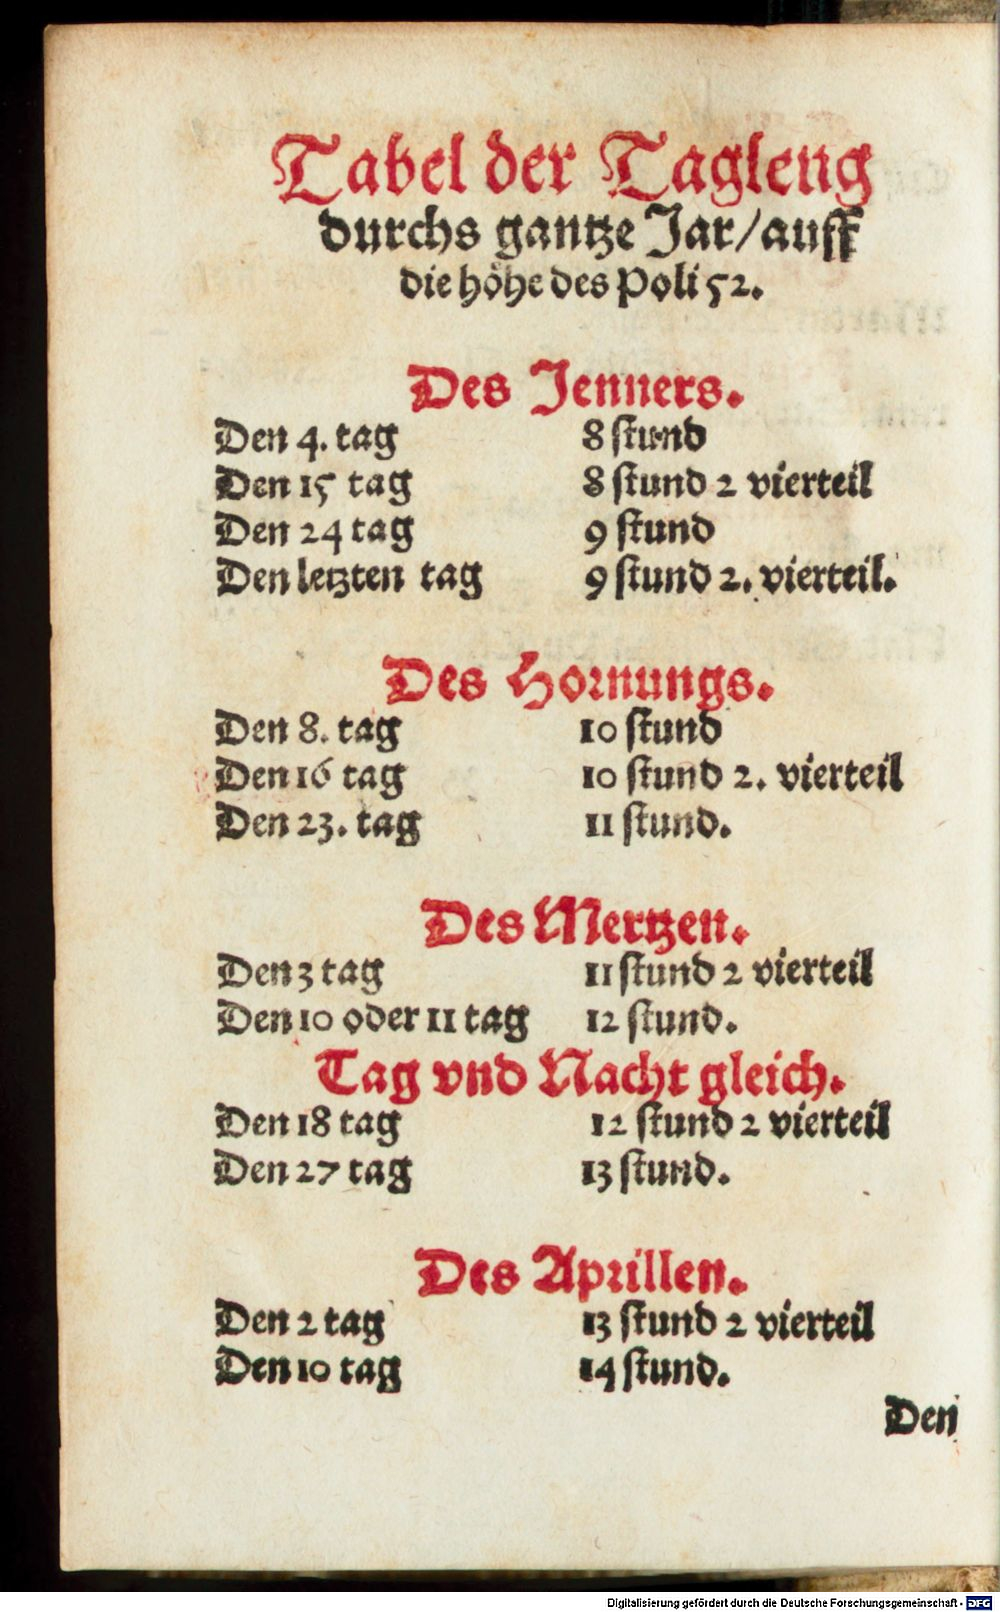 Tabel der Tagleng
durchs gantze Jar/auff
die höhe des Poli 52.
Des Jenners.
Den 4. tag 8 stund
Den 15 tag 8 stund 2 vierteil
Den 24 tag 9 stund
Den letzten tag 9 stund 2. vierteil.
Des Hornungs.
Den 8. tag 10 stund
Den 16 tag 10 stund 2. vierteil
Den 23. tag 11 stund.
Des Mertzen.
Den 3 tag 11 stund 2 vierteil
Den 10 oder 11 tag 12 stund.
Tag vnd Nacht gleich.
Den 18 tag 12 stund 2 vierteil
Den 27 tag 13 stund.
Des Aprillen.
Den 2 tag 13 stund 2 vierteil
Den 10 tag 14 stund.
Den
Digitalisierung gefördert durch die Deutsche Forschungsgemeinschaft - DFG